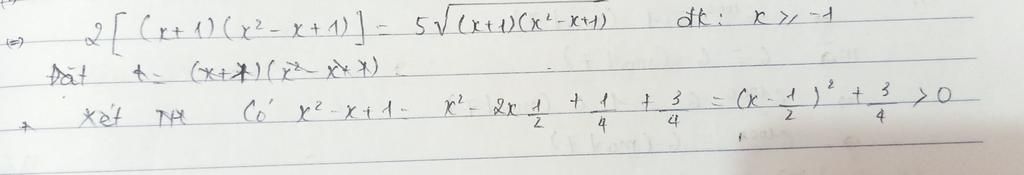 (=) 2[(x+1)(x² - x + 1)] = 5√(x+1)(x²-x+1) đk: x ≥ -1
Đặt t = (x+1)(x² - x + 1)
* xét TH Có x² - x + 1 = x² - 2x 1/2 + 1/4 + 3/4 = (x - 1/2)² + 3/4 > 0